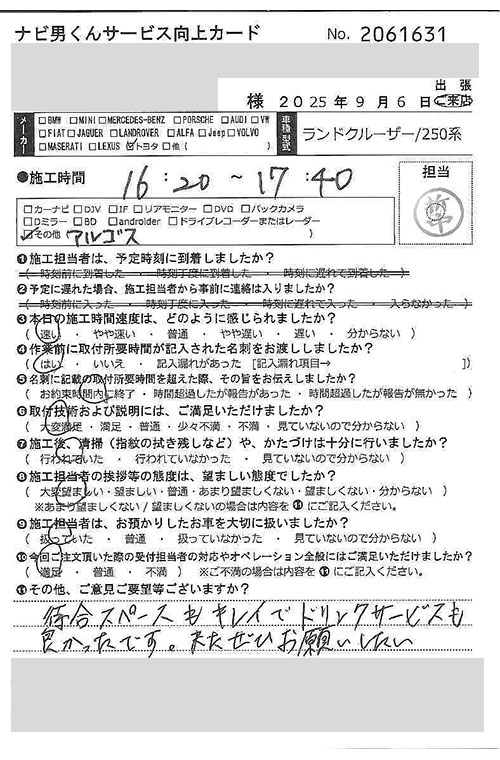 ナビ男くんサービス向上カード No. 2061631
様 2025年9月6日 出張 ご来店
メーカー □BMW □MINI □MERCEDES-BENZ □PORSCHE □AUDI □VW
□FIAT □JAGUER □LANDROVER □ALFA □Jeep □VOLVO
□MASERATI □LEXUS ☑トヨタ □他 ( )
車種型式 ランドクルーザー/250系
●施工時間 16:20~17:40
担当
□カーナビ □DJV □IF □リアモニター □DVD □バックカメラ
□Dミラー □BD □androider □ドライブレコーダーまたはレーダー
☑その他 アルゴス )
❶施工担当者は、予定時刻に到着しましたか?
( 時刻前に到着した ・ 時刻丁度に到着した ・ 時刻に遅れて到着した )
❷予定に遅れた場合、施工担当者から事前に連絡は入りましたか?
( 時刻前に入った ・ 時刻丁度に入った ・ 時刻に遅れて入った ・ 入らなかった )
❸本日の施工時間速度は、どのように感じられましたか?
( 速い ・ やや速い ・ 普通 ・ やや遅い ・ 遅い ・ 分からない )
❹作業前に取付所要時間が記入された名刺をお渡ししましたか?
( はい ・ いいえ ・ 記入漏れがあった [記入漏れ項目→ ])
❺名刺に記載の取付所要時間を超えた際、その旨をお伝えしましたか?
( お約束時間内に終了 ・ 時間超過したが報告があった ・ 時間超過したが報告が無かった )
❻取付技術および説明には、ご満足いただけましたか?
( 大変満足 ・ 満足 ・ 普通 ・ 少々不満 ・ 不満 ・ 見ていないので分からない )
❼施工後、清掃(指紋の拭き残しなど)や、かたづけは十分に行いましたか?
( 行われていた ・ 行われていなかった ・ 見ていないので分からない )
❽施工担当者の挨拶等の態度は、望ましい態度でしたか?
( 大変望ましい ・ 望ましい ・ 普通 ・ あまり望ましくない ・ 望ましくない ・ 分からない )
※あまり望ましくない/望ましくないの場合は内容を⓫にご記入ください。
❾施工担当者は、お預かりしたお車を大切に扱いましたか?
( 扱っていた ・ 普通 ・ 扱っていなかった ・ 見ていないので分からない )
❿今回ご注文頂いた際の受付担当者の対応やオペレーション全般にはご満足いただけましたか?
( 満足 ・ 普通 ・ 不満 ) ※ご不満の場合は内容を⓫にご記入ください。
⓫その他、ご意見ご要望等ございますか?
待合スペースもキレイでドリンクサービスも
良かったです。またぜひお願いしたい